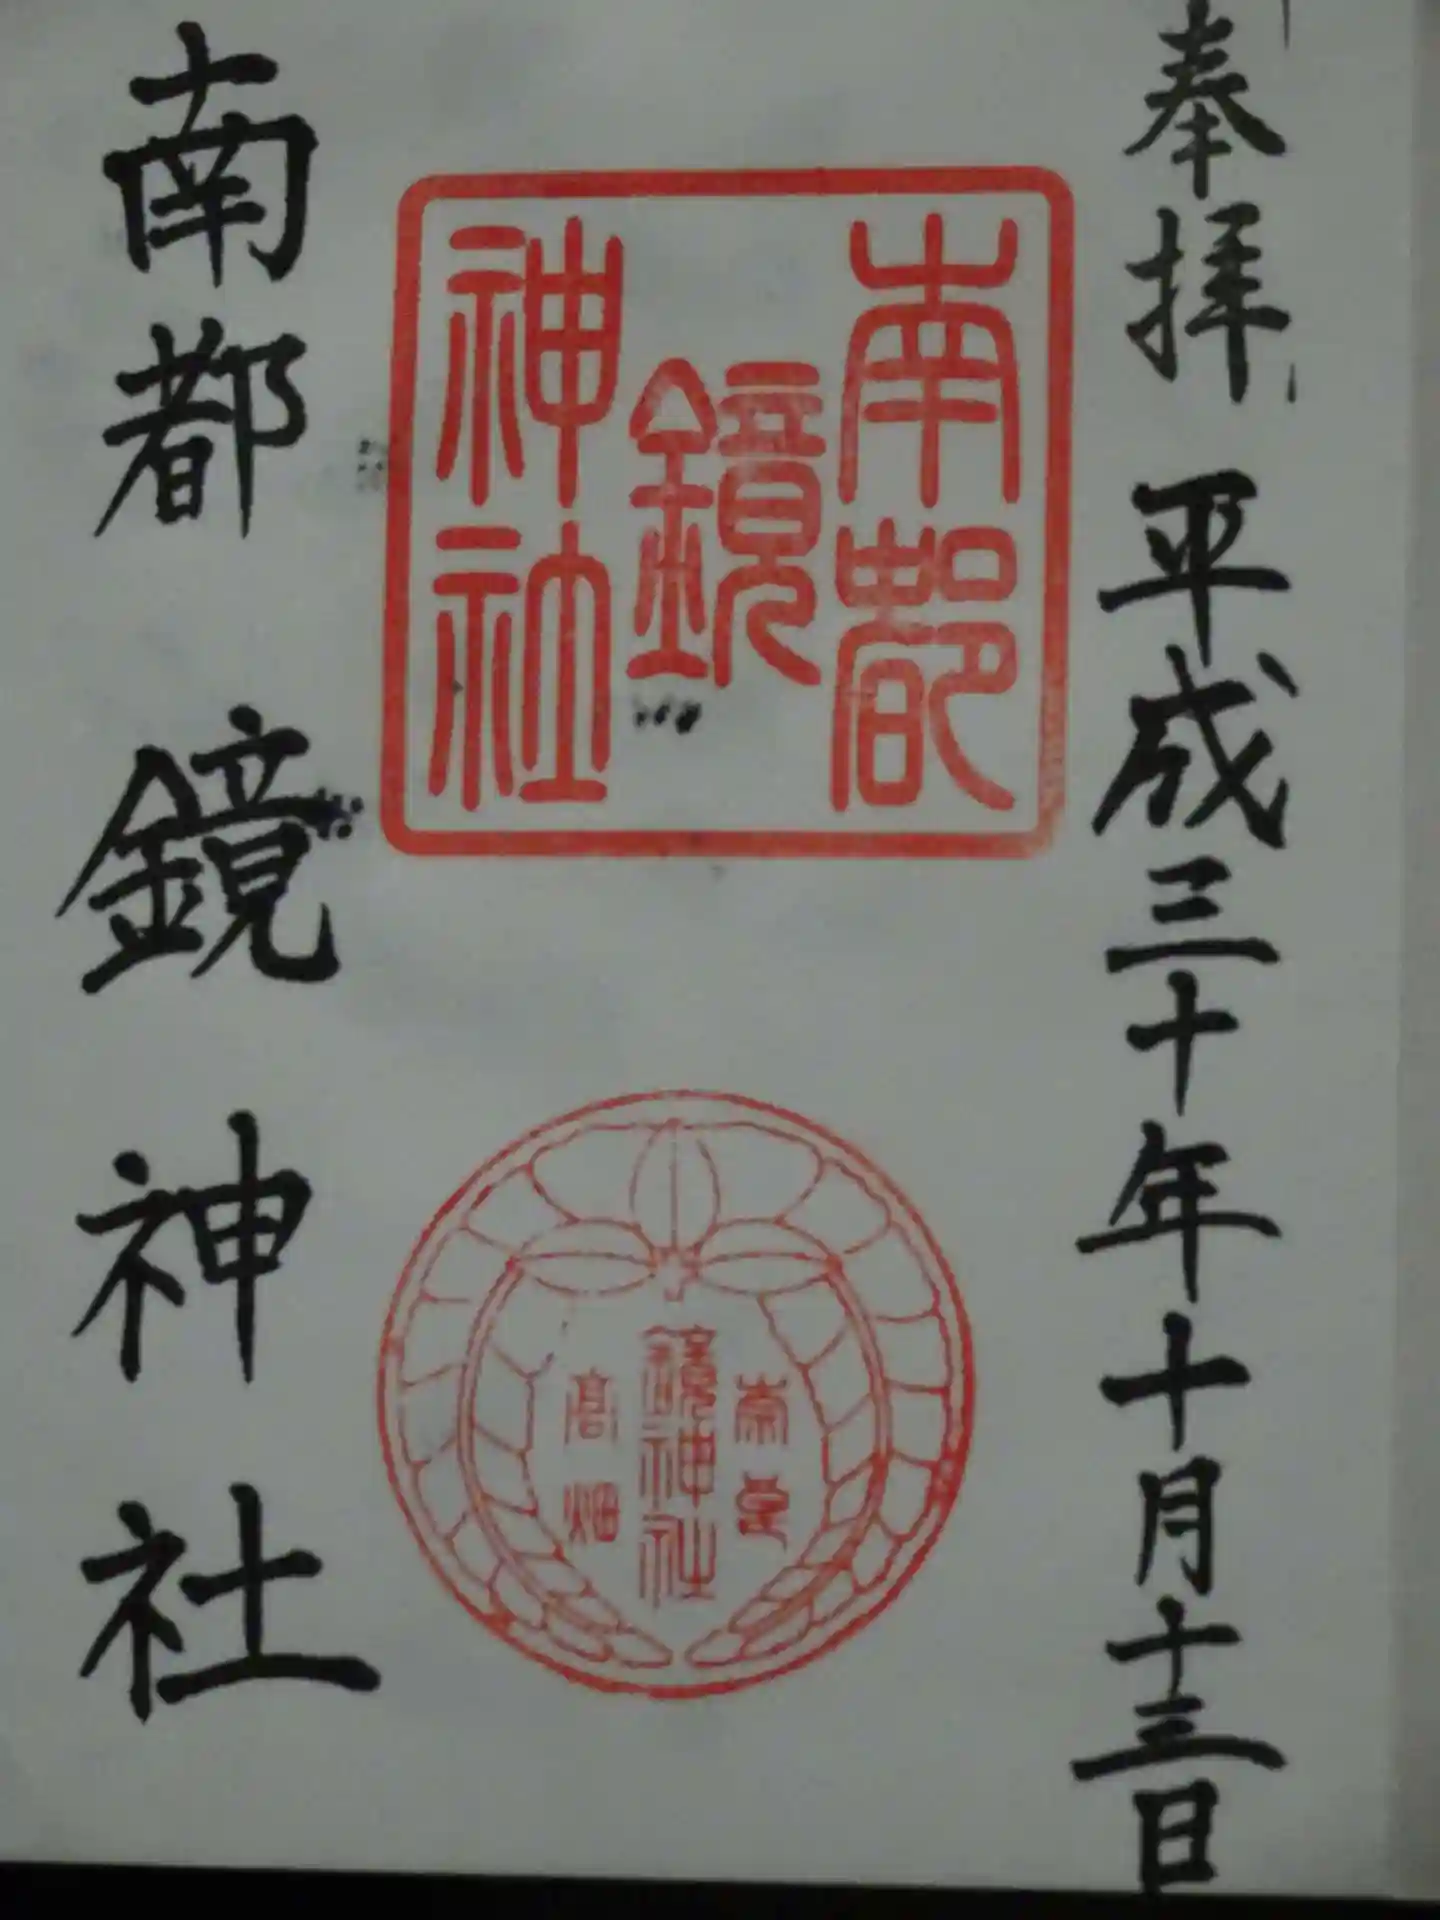 奉拝 平成三十年十月十三日
南都
鏡
神社
鏡神社
高畑
南都鏡神社